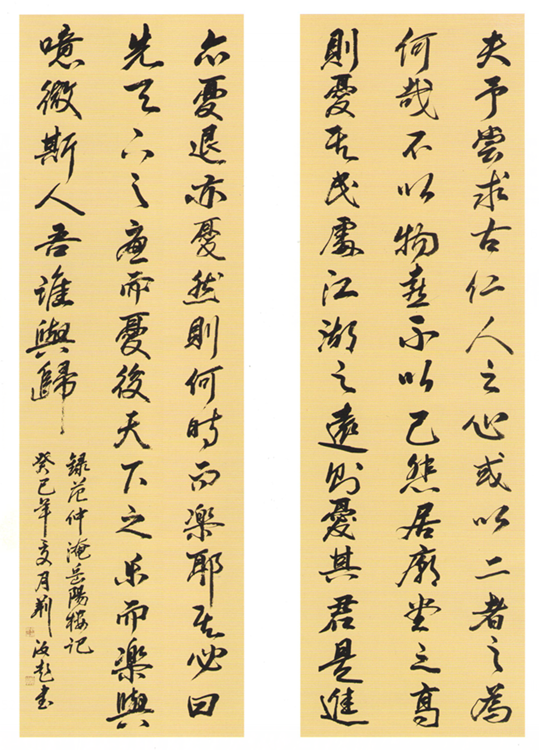 夫予嘗求古仁人之心或以二者之為
何哉不以物喜不以己悲居廟堂之高
則憂其民處江湖之遠則憂其君是進
亦憂退亦憂然則何時而樂耶其必曰
先天下之憂而憂後天下之樂而樂與
噫微斯人吾誰與歸
錄范仲淹岳陽樓記
癸巳年夏月荊書